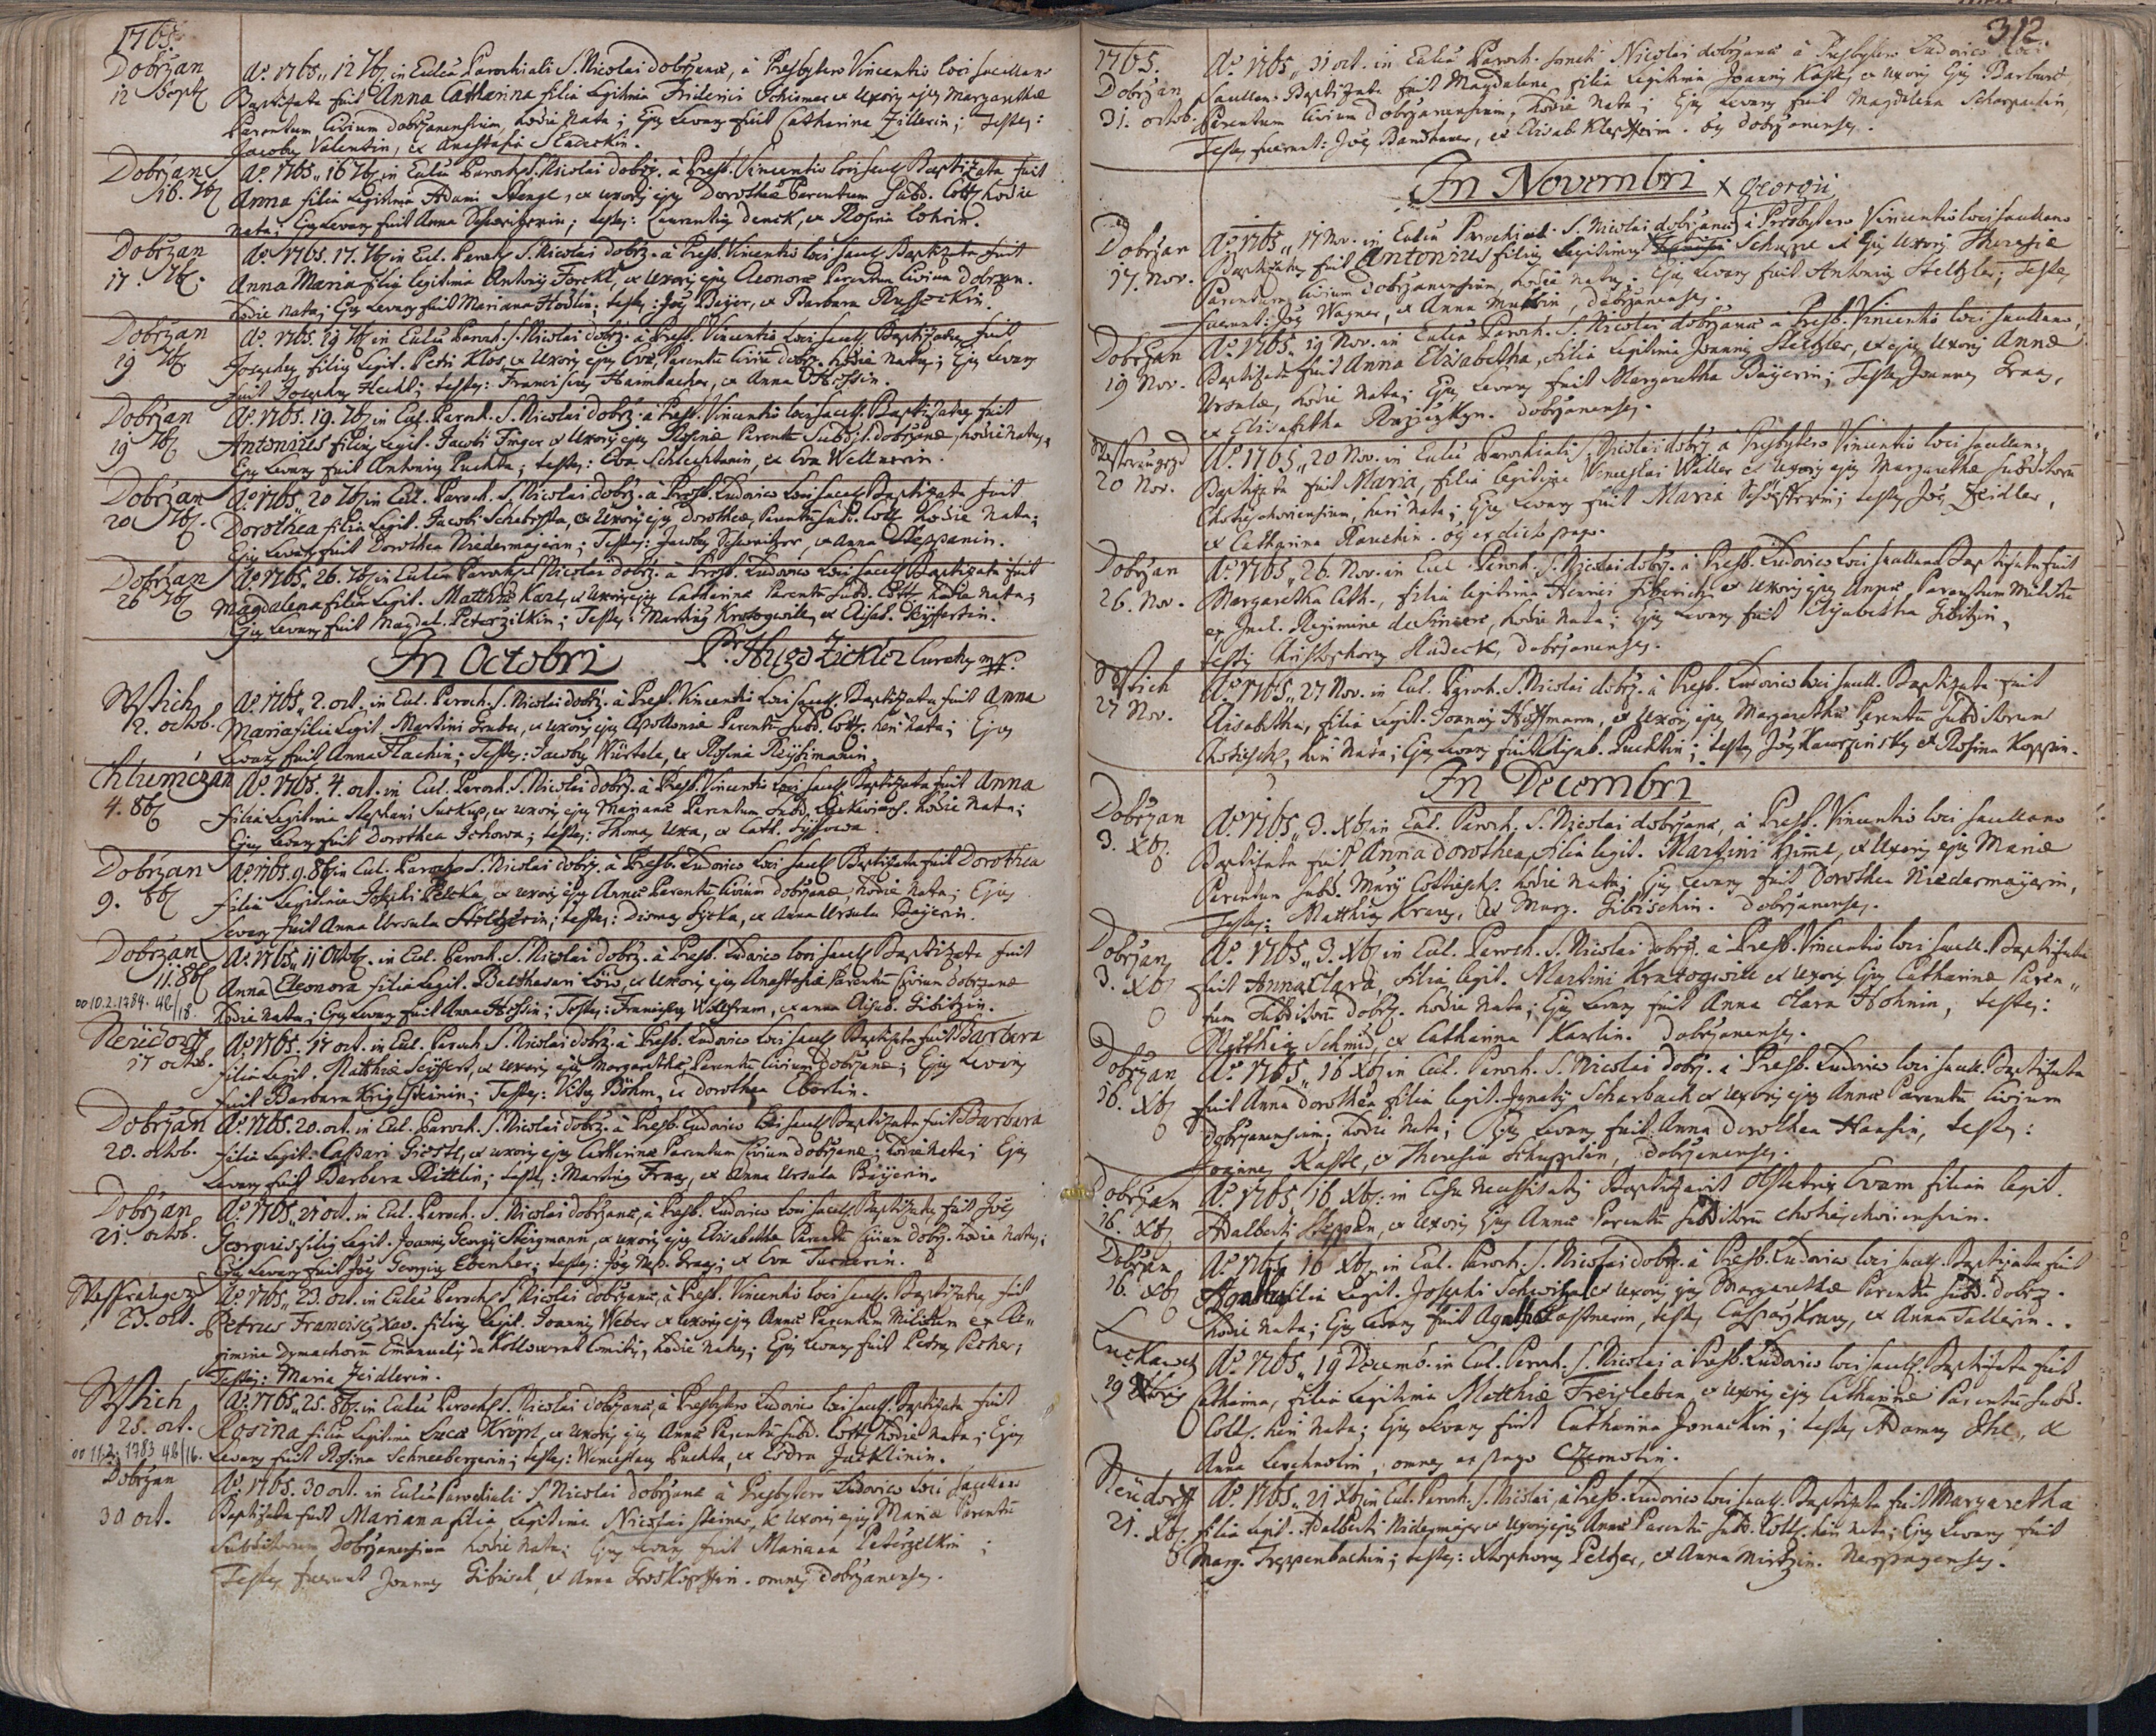 1765.
Dobrzan
12 Sept
Aõ. 1765. 12 7b. in Eccl̃ia Parochiali S. Nicolai dobrzanæ, à Presbytero Vincentio loci sacellano
Baptizata fuit Anna Catharina filia legitima Friderici Schirmer et Uxoris ejus Margarethæ
Parentum civium dobrzanensium, hodie nata; Ejus Levans fuit Catharina Zillerin; Testes:
Jacobus Valentin, et Anastasia Sladeckin.
Dobrzan
16. 7b
Aõ. 1765. 16 7b. in Eccl̃ia Paroch. S. Nicolai dobrz. à Presb. Vincentio loci sacell. Baptizata fuit
Anna filia legitima Adami Stengl, et uxoris ejus Dorotheæ Parentum Subd. Cott. hodie
nata; Ejus Levans fuit Anna; testes: Laurentius Denck, et Rosina Lohrin.
Dobrzan
17. 7b.
Aõ. 1765. 17. 7b. in Eccl. Paroch. S. Nicolai dobrz. à Presb. Vincentio loci sacell. Baptizata fuit
Anna Maria filia legitima Antonii Forckl, et uxoris ejus Eleonoræ Parentum Civium dobrzan.
hodie nata; Ejus Levans fuit Mariana Hodlin; testes: Joês Beijer, et Barbara
Dobrzan
19 7b
Aõ. 1765. 19 7b in Eccl̃ia Paroch. S. Nicolai dobrz. à Presb. Vincentio loci sacell. Baptizatus fuit
Josephus filius legit. Petri Klos, et Uxoris ejus Evæ, Parentũ Civiũ dobrz. hodie natus; Ejus Levans
fuit Josephus Heckl; testes: Franciscus Hambacher, et Anna Hössin.
Dobrzan
19 7b
Aõ. 1765. 19. 7b. in Eccl. Paroch. S. Nicolai dobrz. à Presb. Vincentio loci sacell. Baptizatus fuit
Antonius filius legit. Jacobi Finger et Uxoris ejus Rosinæ Parentũ Subdit. dobrzanæ, hodie natus,
Ejus Levans fuit Antonius Puchta; testes: Eva, et Eva Wellnerin.
Dobrzan
20 7b.
Aõ. 1765. 20 7b. in Eccl. Paroch. S. Nicolai dobrz. à Presb. Ludovico loci sacell. Baptizata fuit
Dorothea filia legit. Jacobi, et Uxoris ejus Dorotheæ, Parentũ subd. Cott. hodie nata;
Ejus Levans fuit Dorothea Niedermajerin; Testes: Jacobus Schweitzer, et Anna Steppanin.
Dobrzan
26 7b
Aõ. 1765. 26. 7b. in Eccl̃ia Paroch. S. Nicolai dobrz. à Presb. Ludovico loci sacell. Baptizata fuit
Magdalena filia legit. Matthiæ Karl, et Uxoris ejus Catharinæ Parentũ subd. Cott. hodie nata;
Ejus Levans fuit Magdal. Peterzilkin; Testes: Martinus Kratogwill, et Elisab. Seyffertin.
In Octobri P. Hugo Zickler Curatus mp.
Wstich
2. octob.
Aõ. 1765. 2. oct. in Eccl. Paroch. S. Nicolai dobrz. à Presb. Vincentio loci sacell. Baptizata fuit Anna
Maria filia legit. Martini Gruber, et uxoris ejus Apolloniæ Parentũ subd. Cott. heri nata; Ejus
Levans fuit Anna Flachin; Testes: Jacobus Würtele, et Rosina
Chlumczan
4. 8b
Aõ. 1765. 4. oct. in Eccl. Paroch. S. Nicolai dobrz. à Presb. Vincentio loci sacell. Baptizata fuit Anna
filia legitima Stephani Suckup, et uxoris ejus Marianæ Parentum subd. hodie nata;
Ejus Levans fuit Dorothea; testes: Thomas Uxa, et Cath.
Dobrzan
9. 8b
Aõ. 1765. 9. 8b. in Eccl. Paroch. S. Nicolai dobrz. à Presb. Ludovico loci sacell. Baptizata fuit Dorothea
filia legitima Josephi Peteka, et uxoris ejus Annæ Parentũ Civium dobrzanæ, hodie nata; Ejus
Levans fuit Anna Ursula; testes: Dismas Lycka, et Anna Ursula Beijerin.
Dobrzan
11. 8b
oo 10.2.1784. 46/18.
Aõ. 1765. 11 Octob. in Eccl. Paroch. S. Nicolai dobrz. à Presb. Ludovico loci sacell. Baptizata fuit
Anna Eleonora filia legit. Balthasari Löw, et uxoris ejus Anastasiæ Parentũ Civium dobrzanæ
hodie nata; Ejus Levans fuit Anna Hössin; Testes: Franciscus Wolffram, et Anna Elisab. Gibitzin.
Neüdorff
17 octob.
Aõ. 1765. 17 oct. in Eccl. Paroch. S. Nicolai dobrz. à Presb. Ludovico loci sacell. Baptizata fuit Barbara
filia legit. Matthiæ Seiffert, et uxoris ejus Margarethæ, Parentũ civium dobrzanæ; Ejus Levans
fuit Barbara; Testes: Vitus Böhm, et Dorothea Eberlin.
Dobrzan
20. octob.
Aõ. 1765. 20. oct. in Eccl. Paroch. S. Nicolai dobrz. à Presb. Ludovico loci sacell. Baptizata fuit Barbara
filia legit. Caspari, et uxoris ejus Catharinæ Parentum civium dobrzanæ; hodie nata; Ejus
Levans fuit Barbara Rittlin; testes: Martinus Fray, et Anna Ursula Beijerin.
Dobrzan
21. octob.
Aõ. 1765. 21 oct. in Eccl. Paroch. S. Nicolai dobrzanæ, à Presb. Ludovico loci sacell. Baptizatus fuit Joês
Georgius filius legit. Joannis Georgii Steigmann, et uxoris ejus Elisabethæ Parentũ civium dobrz. hodie natus;
Ejus Levans fuit Joês Georgius Ebenher; testes: Joês Nep. Gray; et Eva Turnerin.
23. oct.
Aõ. 1765. 23. oct. in Eccl̃ia Paroch. S. Nicolai dobrzanæ, à Presb. Vincentio loci sacell. Baptizatus fuit
Petrus Franciscus Xav. filius legit. Joannis Weber et Uxoris ejus Annæ Parentum Militum ex Re-
gimine Dymachorũ Emanuelis de Kollowrat Comitis, hodie natus; Ejus Levans fuit Petrus Pecher;
Testes: Maria Zeidlerin.
Wstich
25. oct.
oo 11.2. 1783 46/16.
Aõ. 1765. 25. 8b. in Eccl̃ia Paroch. S. Nicolai dobrzanæ, à Presbytero Ludovico loci sacell. Baptizata fuit
Rosina filia legitima Lucæ Kröpl, et Uxoris ejus Annæ Parentũ subd. Cott. hodie nata; Ejus
Levans fuit Rosina Schneebergerin; testes: Wenceslaus Puchta, et Jacklinin.
Dobrzan
30 oct.
Aõ. 1765. 30 oct. in Eccl̃ia Parochiali S. Nicolai dobrzanæ à Presbytero Ludovico loci sacellano
Baptizata fuit Mariana filia legitima Nicolai Steiner, et Uxoris ejus Mariæ Parentũ
Subditorum Dobrzanensium hodie nata; Ejus Levans fuit Mariana Peterzilkin;
Testes fuerunt Joannes Gibisch, et Anna Groskopffin. omnes dobrzanenses.
312.
1765.
Dobrzan
31. octob.
Aõ. 1765. 31 oct. in Eccl̃ia Paroch. Sancti Nicolai dobrzanæ à Presbytero Ludovico loci
Sacellan. Baptizata fuit Magdalena filia legitima Joannis Kastl, et uxoris Ejus Barbaræ
Parentum Civium dobrzanensium, hodie nata; Ejus Levans fuit Magdalena Scharpachin,
Testes fuerunt: Joês Bandhauer, et Elisab. oês dobrzanenses.
In Novembri x Georgii
Dobrzan
17. Nov.
Aõ. 1765. 17 Nov. in Eccl̃ia Parochiali S. Nicolai dobrzanæ à Presbytero Vincentio loci sacellano
Baptizatus fuit Antonius filius legitimus x Schuppe et Ejus Uxoris Theresiæ
Parentum Civium dobrzanensium, hodie natus; Ejus Levans fuit Antonius Steltzler; Testes
fuerunt: Joês Wagner, et Anna, dobrzanenses.
Dobrzan
19 Nov.
Aõ. 1765. 19 Nov. in Eccl̃ia Paroch. S. Nicolai dobrzanæ à Presb. Vincentio loci sacellano,
Baptizata fuit Anna Elisabetha, filia legitima Joannis Steltzler, et ejus Uxoris Annæ
Ursulæ, hodie nata; Ejus Levans fuit Margaretha Beijerin; Testes Joannes Gray,
et Elisabetha. dobrzanenses.
20 Nov.
Aõ. 1765. 20 Nov. in Eccl̃ia Parochiali S. Nicolai dobrz. à Presbytero Vincentio loci sacellano
Baptizata fuit Maria, filia legitima Venceslai Waller et Uxoris ejus Margarethæ subditorum
Chotieschoviensium, heri nata; Ejus Levans fuit Maria; testes Joês Zeidler,
et Catharina Rauchin. oês ex dicto pago.
Dobrzan
26. Nov.
Aõ. 1765. 26. Nov. in Eccl. Paroch. S. Nicolai dobrz. à Presb. Ludovico loci sacellano Baptizata fuit
Margaretha Cath., filia legitima Henrici et Uxoris ejus Annæ, Parentum Militũ
ex Incl. Regimine de Sincere, hodie nata; Ejus Levans fuit Elisabetha Gibitzin,
testis Christophorus Sladeck, dobrzanenses.
Wstich
27 Nov.
Aõ. 1765. 27 Nov. in Eccl. Paroch. S. Nicolai dobrz. à Presb. Ludovico loci sacell. Baptizata fuit
Elisabetha, filia legit. Joannis Hoffmann, et Uxoris ejus Margarethæ Parentũ subditorum
Chotiesch., heri nata; Ejus Levans fuit Elisab. Puchtin; testes Joês et Rosina
In Decembri
Dobrzan
3. xb.
Aõ. 1765. 3. xb. in Eccl. Paroch. S. Nicolai dobrzanæ, à Presb. Vincentio loci sacellano
Baptizata fuit Anna Dorothea, filia legit. Martini Himml, et Uxoris ejus Mariæ
Parentum subd. hodie nata; Ejus Levans fuit Dorothea Niedermayerin,
Testes: Matthias Kraus, et Marg. Gibischin. dobrzanenses.
Dobrzan
3. xb
Aõ. 1765. 3. xb. in Eccl. Paroch. S. Nicolai dobrz. à Presb. Vincentio loci sacell. Baptizata
fuit Anna Clara, filia legit. Martini Kratogwill et uxoris Ejus Catharinæ Paren-
tum subditorũ dobrz. hodie nata; Ejus Levans fuit Anna Clara Hohnin, testes:
Matthias Schmid, et Catharina Karlin. dobrzanenses.
Dobrzan
16. xb
Aõ. 1765. 16 xb in Eccl. Paroch. S. Nicolai dobrz. à Presb. Ludovico loci sacell. Baptizata
fuit Anna Dorothea filia legit. Ignatii Scharbach et uxoris ejus Annæ Parentũ Civium
dobrzanensium, hodie nata; Ejus Levans fuit Anna Dorothea Hansin, testes:
Joannes Kastl, et Theresia Schuppelin, dobrzanenses.
Dobrzan
16. xb
Aõ. 1765. 16 xb. in Casu necessitatis Baptizavit Obstetrix Evam filiam legit.
Adalberti Steppan, et Uxoris Ejus Annæ Parentũ subditorũ Chotieschoviensium.
Dobrzan
16. xb
Aõ. 1765. 16 xb. in Eccl. Paroch. S. Nicolai dobrz. à Presb. Ludovico loci sacell. Baptizata fuit
Agatha filia legit. Josephi et uxoris ejus Margarethæ Parentũ subd. dobrz.
hodie nata; Ejus Levans fuit Agatha Kastnerin, testes Casparus Kraus, et Anna Tallerin.
19 xbris
Aõ. 1765. 19 Decemb. in Eccl. Paroch. S. Nicolai à Presb. Ludovico loci sacell. Baptizata fuit
Catharina, filia legitima Matthiæ Freisleben, et uxoris ejus Catharinæ Parentũ subd.
Cott. heri nata; Ejus Levans fuit Catharina Jonackin; testes Adamus, et
Anna, omnes ex pago Czernotin.
Neüdorff
21. xb
Aõ. 1765. 21 xb. in Eccl. Paroch. S. Nicolai, à Presb. Ludovico loci sacell. Baptizata fuit Margaretha
filia legit. Adalberti Nidermajer et Uxoris ejus Annæ Parentũ subd. Cott. heri nata; Ejus Levans fuit
Marg. Treppenbachin; testes: Xstophorus Peltzer, et Anna.